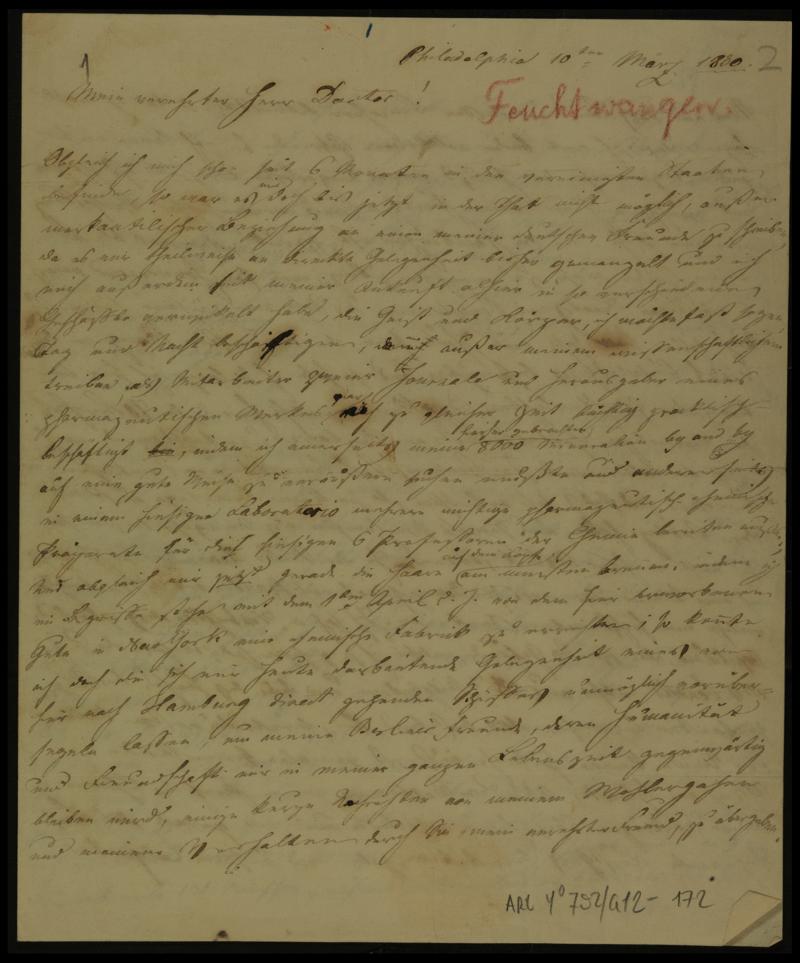 1
Philadelphia 10ten März 1830. 2
Mein verehrter Herr Doctor!
Feuchtwanger.
Obgleich ich mich schon seit 6 Monaten in den vereinigten Staaten
befinde, so war es mir doch bis jetzt in der That nicht möglich, außer
merkantilischer Beziehung an einen meiner deutschen Freunde zu schreiben,
da es mir theilweise an direkter Gelegenheit bisher gemangelt und ich
mich außerdem seit meiner Ankunft allhier in so verschiedene
Geschäfte verwickelt habe, die Geist und Körper, ich möchte fast sagen
Tag und Nacht beschäftigen, außer meinem wissenschaftlichen
treiben, als Mitarbeiter zweier Journale und Herausgeber eines
pharmazeutischen Werkes zu gleicher Zeit praktisch
beschäftigt bin, indem ich einerseits meine 8000 by and by
hierher gebrachten
auf eine gute Weise zu veräußern suchen mußte und andererseits
in einem hiesigen Laboratorio mehrere wichtige pharmazeutisch-chemische
Präparate für die hiesigen 6 Professoren der Chemie bereiten
Und obgleich mir jetzt gerade die Haare am meisten brennen, indem ich
auf dem Kopfe
im Begriffe stehe mit dem 1ten April d. J. von dem hier erworbenen
Gute in New York eine chemische Fabrick zu errichten; so konnte
ich doch die sich mir heute darbietende Gelegenheit eines von
hier nach Hamburg direct gehenden Schiffes unmöglich vorüber-
segeln lassen, um meine Berliner Freunde, deren Humanität
und Freundschaft mir in meiner ganzen Lebenszeit gegenwärtig
bleiben wird, einige kurze Nachrichten von meinem Wohlergehen
und meinem Verhalten durch Sie, mein verehrter Freund, zu übergeben.
ARL 4° 792/A12- 172